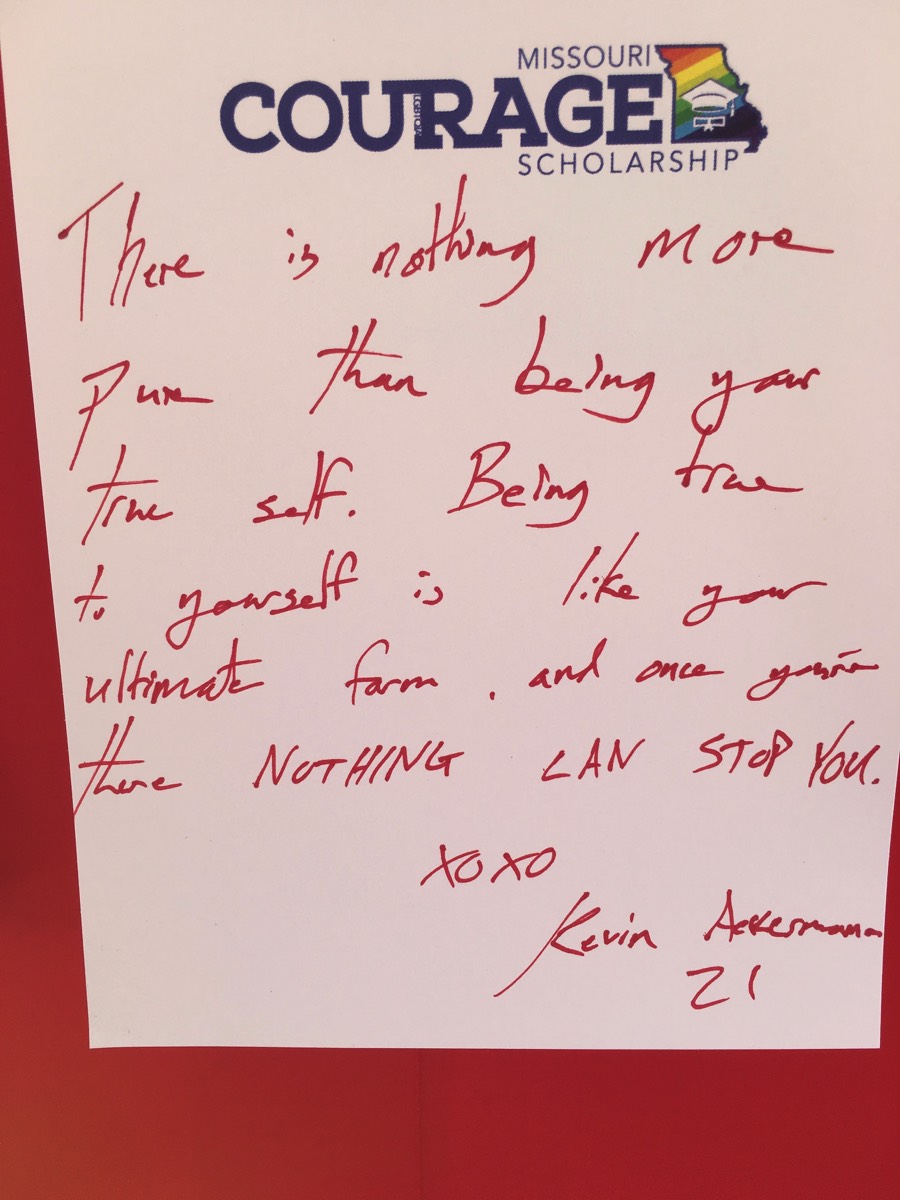 MISSOURI
COURAGE
SCHOLARSHIP
There is nothing more
pure than being your
true self. Being true
to yourself is like your
ultimate form. and once you're
there NOTHING CAN STOP YOU.
XOXO
Kevin Ackermann
21